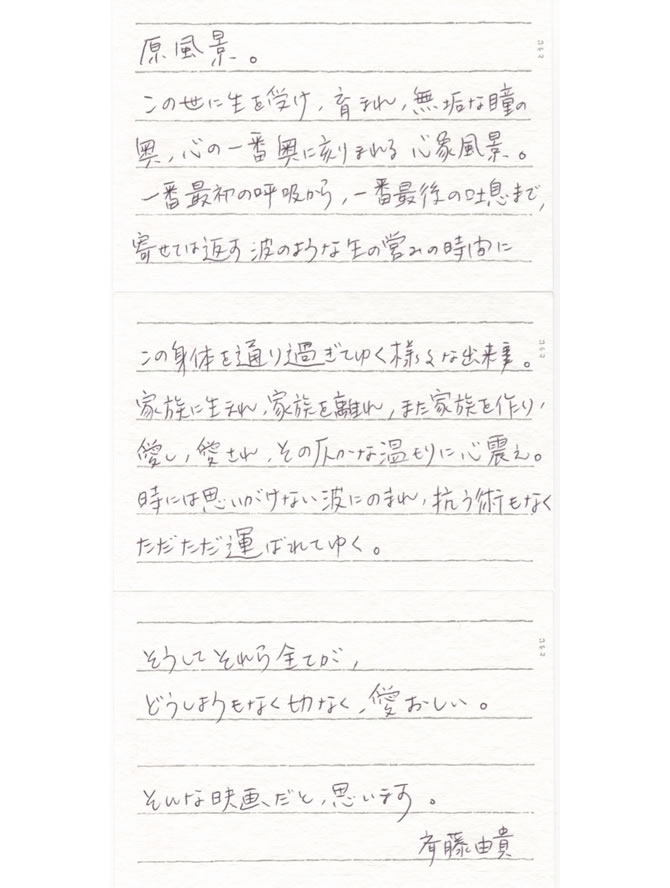 原風景。
この世に生を受け、育まれ、無垢な瞳の
奥、心の一番奥に刻まれる心象風景。
一番最初の呼吸から、一番最後の吐息まで、
寄せては返す波のような生の営みの時間に
この身体を通り過ぎてゆく様々な出来事。
家族に生まれ、家族を離れ、また家族を作り、
愛し、愛され、その仄かな温もりに心震え。
時には思いがけない波にのまれ、抗う術もなく
ただただ運ばれてゆく。
そうしてそれら全てが、
どうしようもなく切なく、愛おしい。
そんな映画、だと、思います。
斉藤由貴